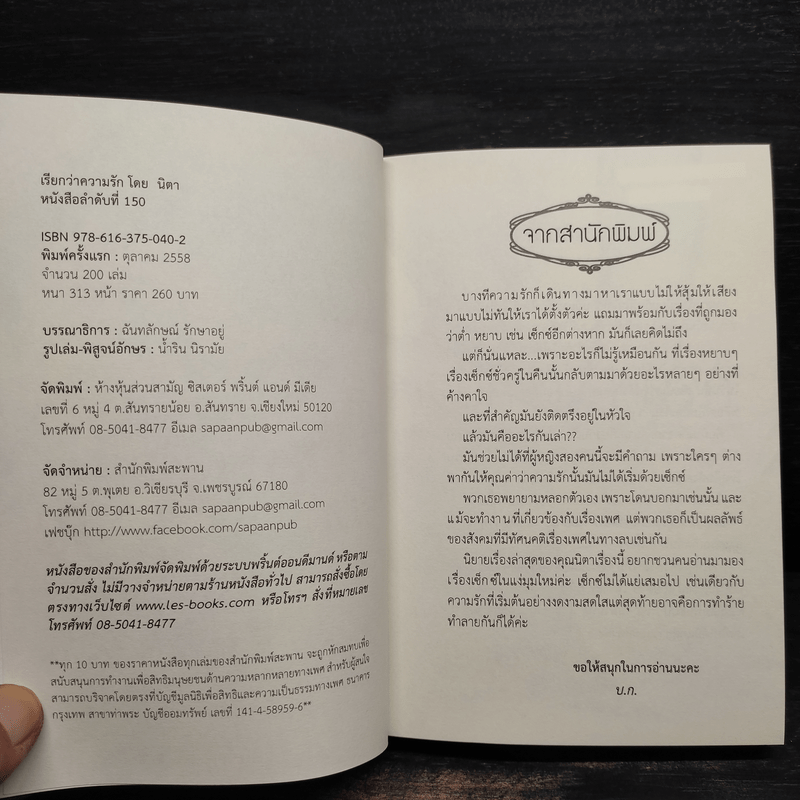 เรียกว่าความรัก โดย นิตา
หนังสือลำดับที่ 150
ISBN 978-616-375-040-2
พิมพ์ครั้งแรก : ตุลาคม 2558
จำนวน 200 เล่ม
หนา 313 หน้า ราคา 260 บาท
บรรณาธิการ : ฉันทลักษณ์ รักษาอยู่
รูปเล่ม-พิสูจน์อักษร : น้ำริน นิรามัย
จัดพิมพ์ : ห้างหุ้นส่วนสามัญ ซิสเตอร์ พริ้นต์ แอนด์ มีเดีย
เลขที่ 6 หมู่ 4 ต.สันทรายน้อย อ.สันทราย จ.เชียงใหม่ 50120
โทรศัพท์ 08-5041-8477 อีเมล sapaanpub@gmail.com
จัดจำหน่าย : สำนักพิมพ์สะพาน
82 หมู่ 5 ต.พุเตย อ.วิเชียรบุรี จ.เพชรบูรณ์ 67180
โทรศัพท์ 08-5041-8477 อีเมล sapaanpub@gmail.com
เฟซบุ๊ก http://www.facebook.com/sapaanpub
หนังสือของสำนักพิมพ์จัดพิมพ์ด้วยระบบพริ้นต์ออนดีมานด์ หรือตาม
จำนวนสั่ง ไม่มีวางจำหน่ายตามร้านหนังสือทั่วไป สามารถสั่งซื้อโดย
ตรงทางเว็บไซต์ www.les-books.com หรือโทรฯ สั่งที่หมายเลข
โทรศัพท์ 08-5041-8477
**ทุก 10 บาท ของราคาหนังสือทุกเล่มของสำนักพิมพ์สะพาน จะถูกหักสมทบเพื่อ
สนับสนุนการทำงานเพื่อสิทธิมนุษยชนด้านความหลากหลายทางเพศ สำหรับผู้สนใจ
สามารถบริจาคโดยตรงที่บัญชีมูลนิธิเพื่อสิทธิและความเป็นธรรมทางเพศ ธนาคาร
กรุงเทพ สาขาท่าพระ บัญชีออมทรัพย์ เลขที่ 141-4-58959-6**
จากสำนักพิมพ์
บางทีความรักก็เดินทางมาหาเราแบบไม่ให้สุ้มให้เสียง
มาแบบไม่ทันให้เราได้ตั้งตัวค่ะ แถมมาพร้อมกับเรื่องที่ถูกมอง
ว่าต่ำ หยาบ เช่น เซ็กซ์อีกต่างหาก มันก็เลยคิดไม่ถึง
แต่ก็นั่นแหละ...เพราะอะไรก็ไม่รู้เหมือนกัน ที่เรื่องหยาบๆ
เรื่องเซ็กซ์ชั่วครู่ในคืนนั้นกลับตามมาด้วยอะไรหลายๆ อย่างที่
ค้างคาใจ
และที่สำคัญมันยังติดตรึงอยู่ในหัวใจ
แล้วมันคืออะไรกันเล่า??
มันช่วยไม่ได้ที่ผู้หญิงสองคนนี้จะมีคำถาม เพราะใครๆ ต่าง
พากันให้คุณค่าว่าความรักนั้นมันไม่ได้เริ่มด้วยเซ็กซ์
พวกเธอพยายามหลอกตัวเอง เพราะโดนบอกมาเช่นนั้น และ
แม้จะทำงานที่เกี่ยวข้องกับเรื่องเพศ แต่พวกเธอก็เป็นผลลัพธ์
ของสังคมที่มีทัศนคติเรื่องเพศในทางลบเช่นกัน
นิยายเรื่องล่าสุดของคุณนิตาเรื่องนี้ อยากชวนคนอ่านมามอง
เรื่องเซ็กซ์ในแง่มุมใหม่ค่ะ เซ็กซ์ไม่ได้แย่เสมอไป เช่นเดียวกับ
ความรักที่เริ่มต้นอย่างงดงามสดใสแต่สุดท้ายอาจคือการทำร้าย
ทำลายกันก็ได้ค่ะ
ขอให้สนุกในการอ่านนะคะ
บ.ก.